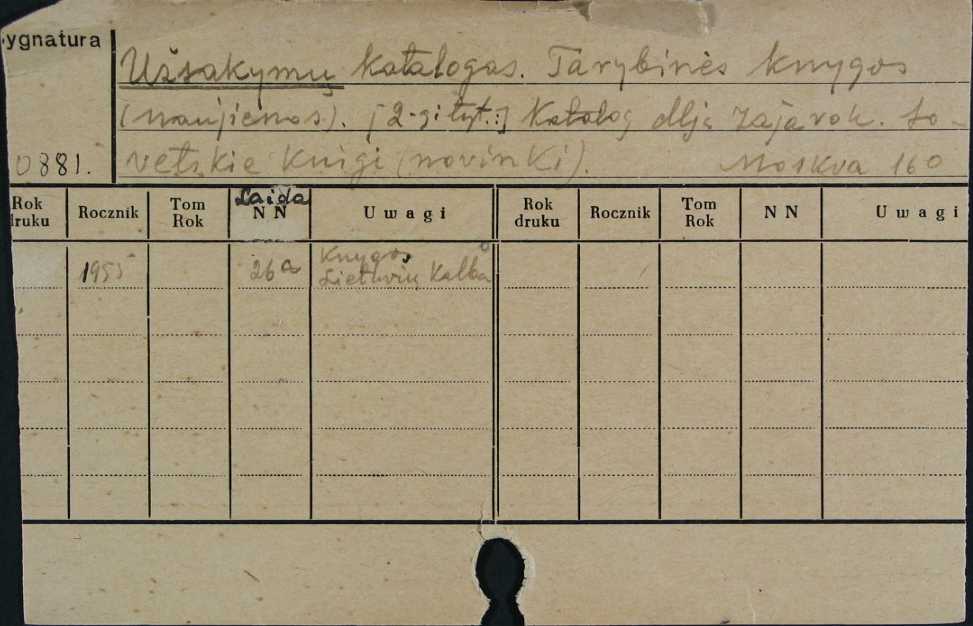 ygnatura
Užsakymų katalogas. Tarybinės knygos
(naujienos). [2-gi tyt.:] Katalog dlja zajavok. So-
0881. vetskie knigi (novinki). Moskva 16°
Rok druku Rocznik Tom Rok Laida NN Uwagi Rok druku Rocznik Tom Rok NN Uwagi
1955 26a Knygos
Lietuvių kalba